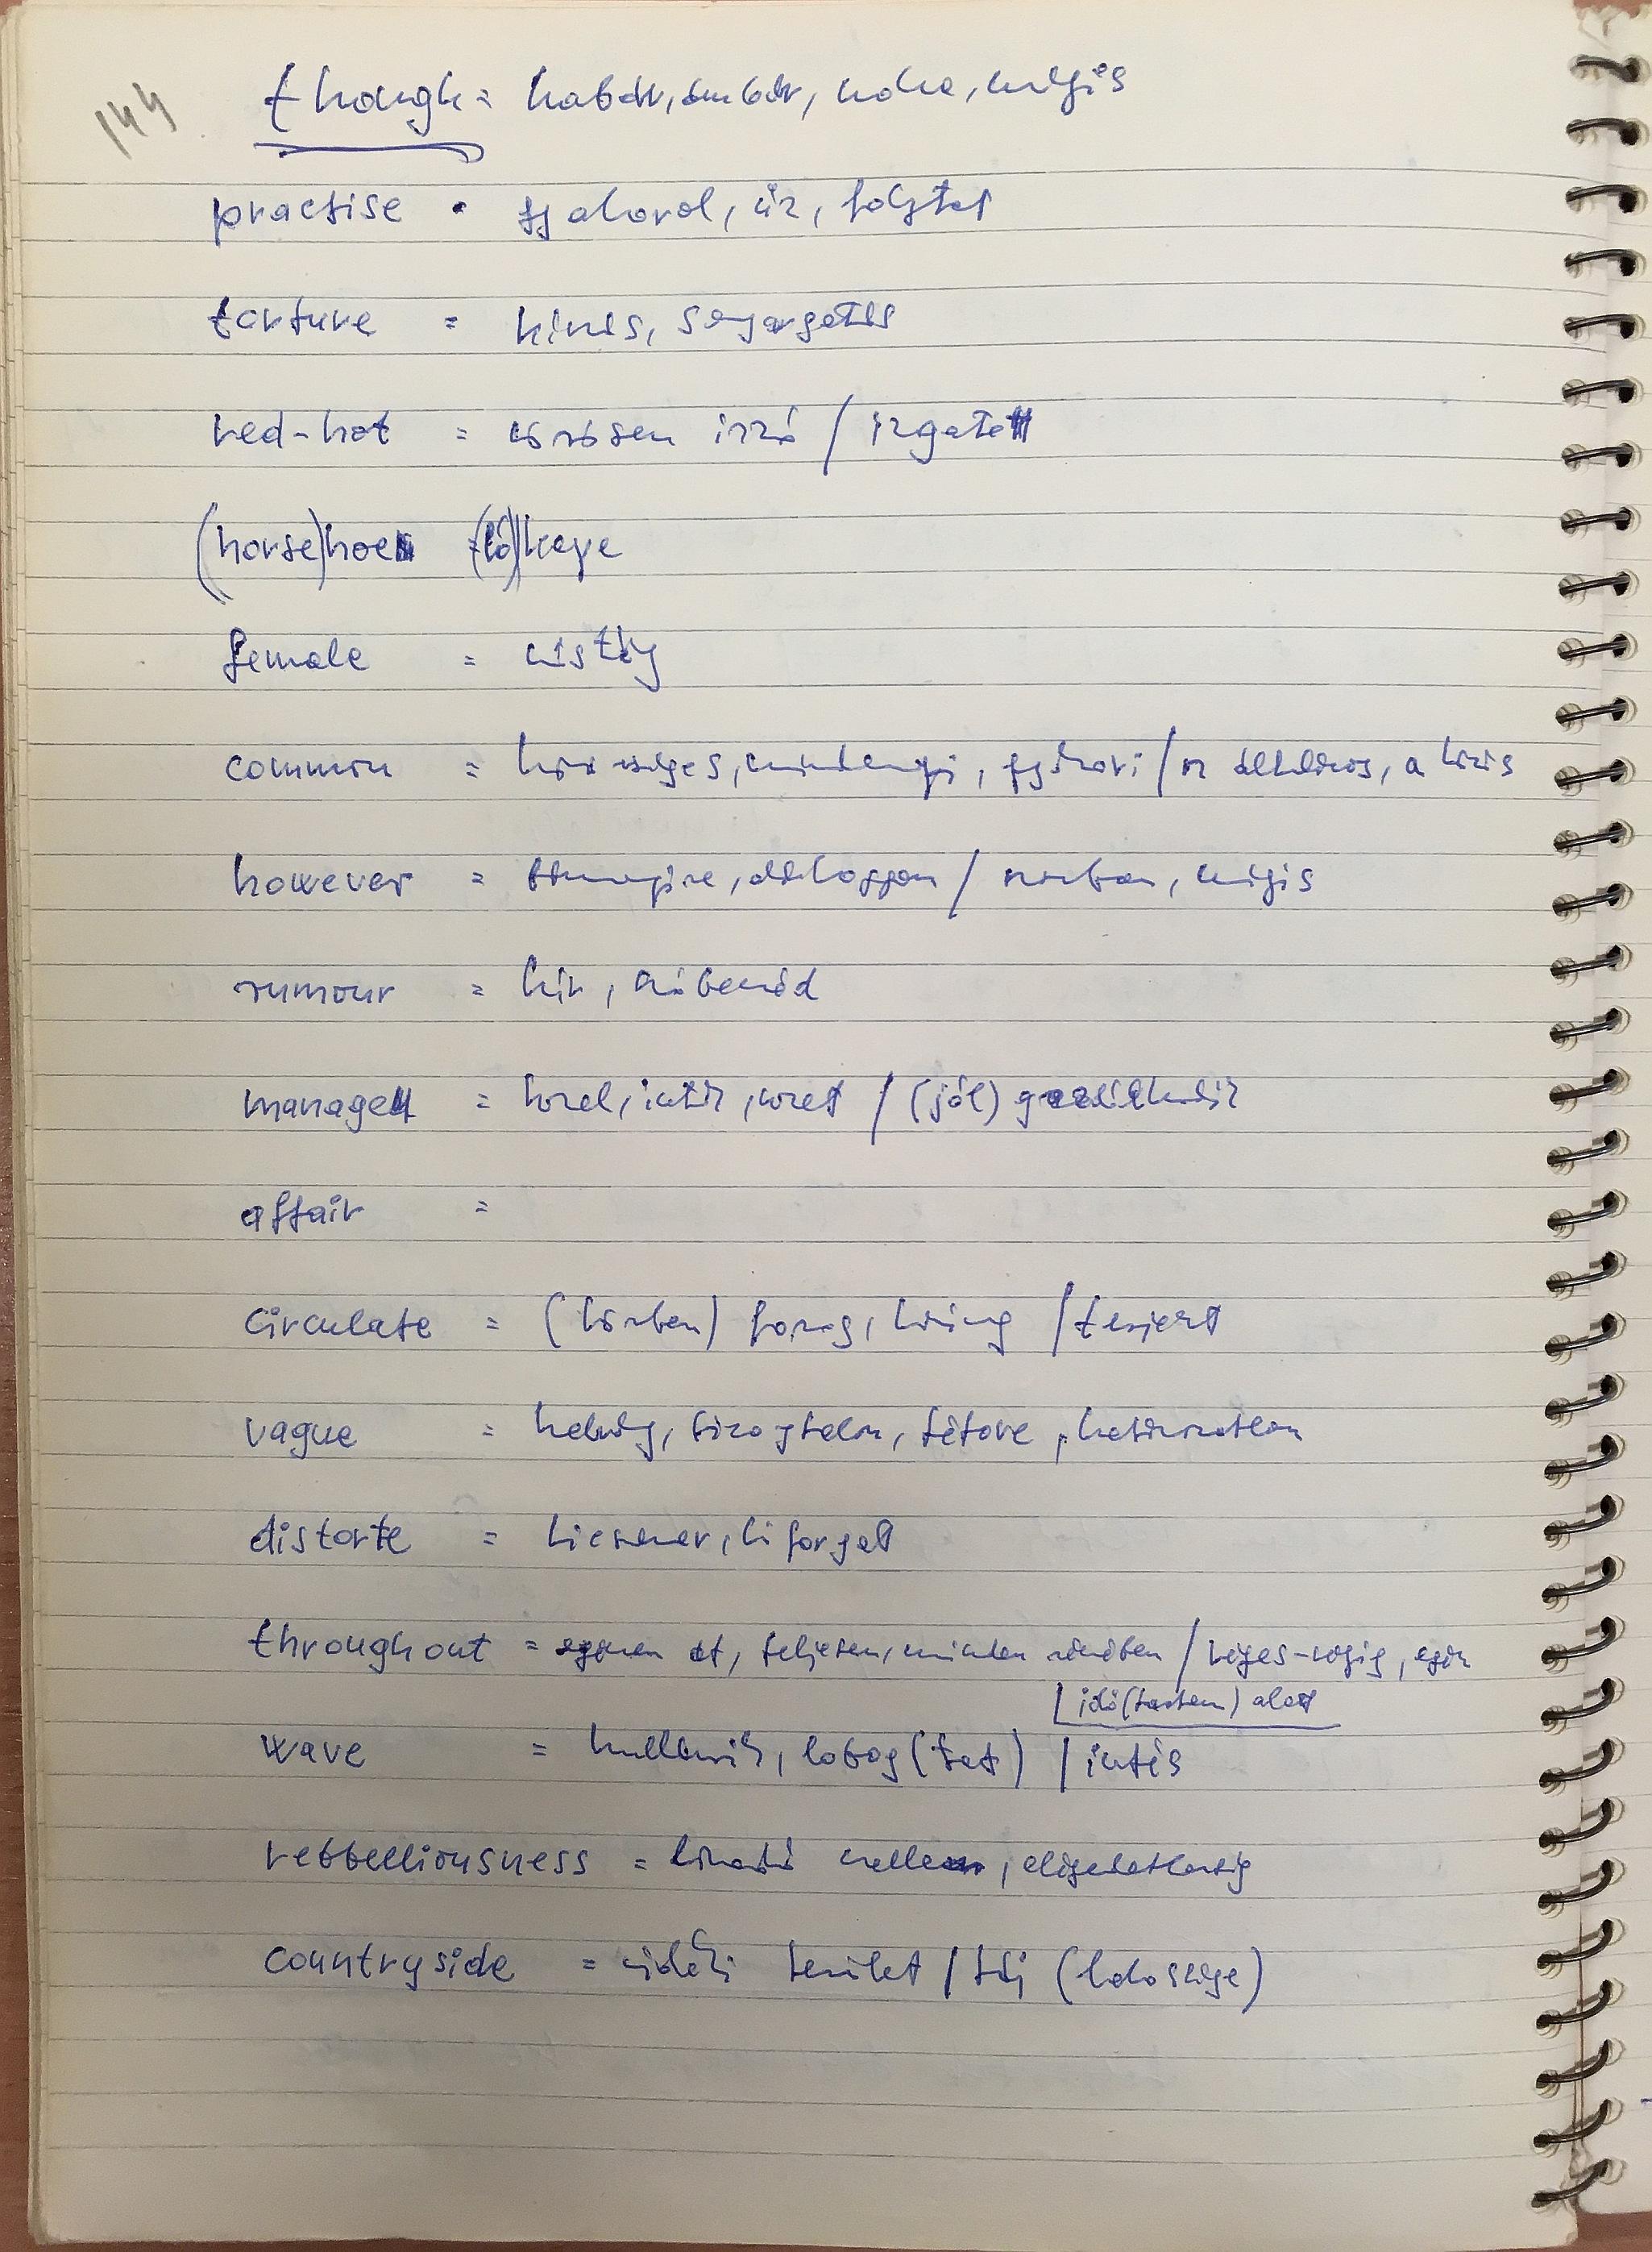 144
though = habár, ámbár, noha, mégis
practise = gyakorol, űz, folytat
torture = kínzás, sanyargatás
red-hot = vörösen izzó / izgatott
(horse)hoe = (ló)kapa
female = nőstény
common = közönséges, mindennapi, gyakori / az általános, a közös
however = bármennyire, akárhogyan / azonban, mégis
rumour = hír, szóbeszéd
manage = kezel, intéz, vezet / (jól) gazdálkodik
affair =
circulate = (körben) forog, kering / terjeszt
vague = halvány, bizonytalan, tétova, határozatlan
distorte = kicsavar, kiforgat
throughout = egészen át, teljesen, minden részében / véges-végig, egész
idő(tartam) alatt
wave = hullámzik, lobog(tat) / intés
rebbelliousness = lázadó szellem, elégedetlenség
countryside = vidéki terület / táj (lakossága)